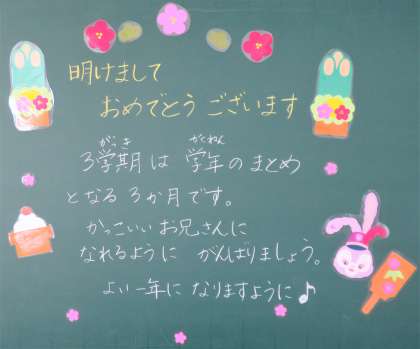 明けまして
おめでとうございます
がっき がくねん
3学期は 学年のまとめ
となる 3か月です。
かっこいいお兄さんに
なれるように がんばりましょう。
よい一年に なりますように♪